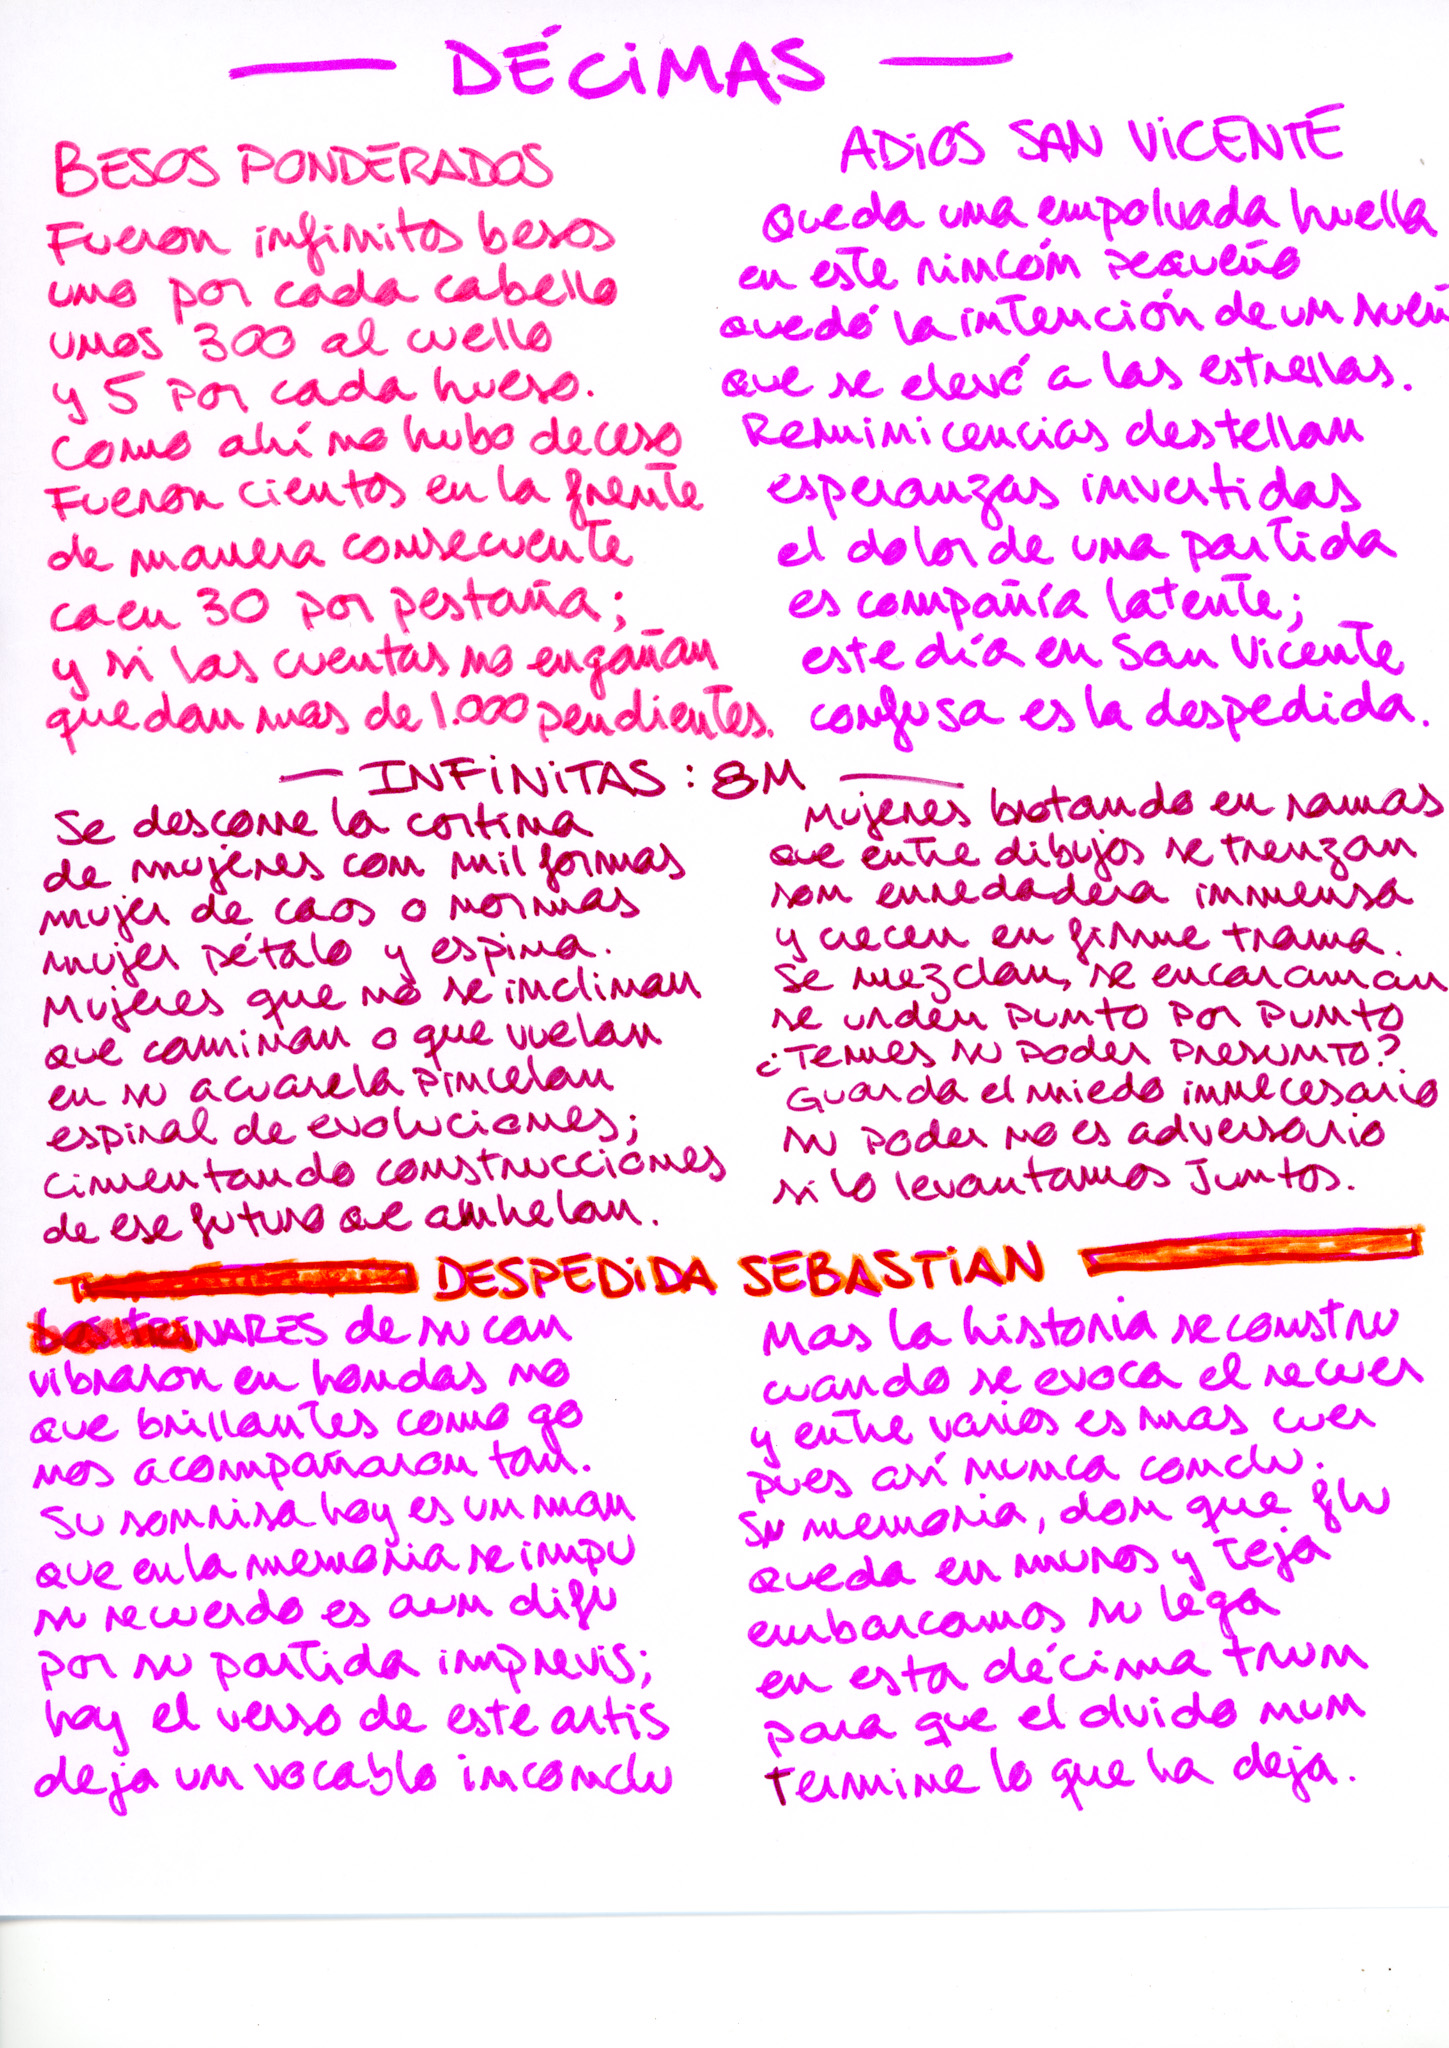 DÉCIMAS
BESOS PONDERADOS
Fueron infinitos besos
uno por cada cabello
unos 300 al cuello
y 5 por cada hueso.
Como ahí no hubo deceso
Fueron cientos en la frente
de manera consecuente
caen 30 por pestaña;
y si las cuentas no engañan
quedan mas de 1.000 pendientes.
ADIOS SAN VICENTE
Queda una empolvada huella
en este rincón pequeño
quedó la intención de un sueñ
que se elevó a las estrellas.
Reminicencias destellan
esperanzas invertidas
el dolor de una partida
es compañía latente;
este día en San Vicente
confusa es la despedida.
INFINITAS: 8M
Se descorre la cortina
de mujeres con mil formas
mujer de caos o normas
mujer pétalo y espina.
Mujeres que no se inclinan
que caminan o que vuelan
en su acuarela pincelan
espiral de evoluciones;
cimentando construcciones
de ese futuro que anhelan.
Mujeres brotando en ramas
que entre dibujos se trenzan
son enredadera inmensa
y crecen en firme trama.
Se mezclan, se encaraman
se urden punto por punto
¿Temes su poder presunto?
Guarda el miedo innecesario
su poder no es adversario
si lo levantamos juntos.
DESPEDIDA SEBASTIAN
NARES de su can
vibraron en hondas no
que brillantes como go
nos acompañaron tan.
Su sonrisa hoy es un man
que en la memoria se impu
su recuerdo es aun difu
por su partida imprevis;
hoy el verso de este artis
deja un vocablo inconclu
Mas la historia se constru
cuando se evoca el recuer
y entre varios es mas cuer
pues así nunca conclu.
Su memoria, don que flu
queda en muros y teja
embarcamos su lega
en esta décima trun
para que el olvido nun
termine lo que ha deja.